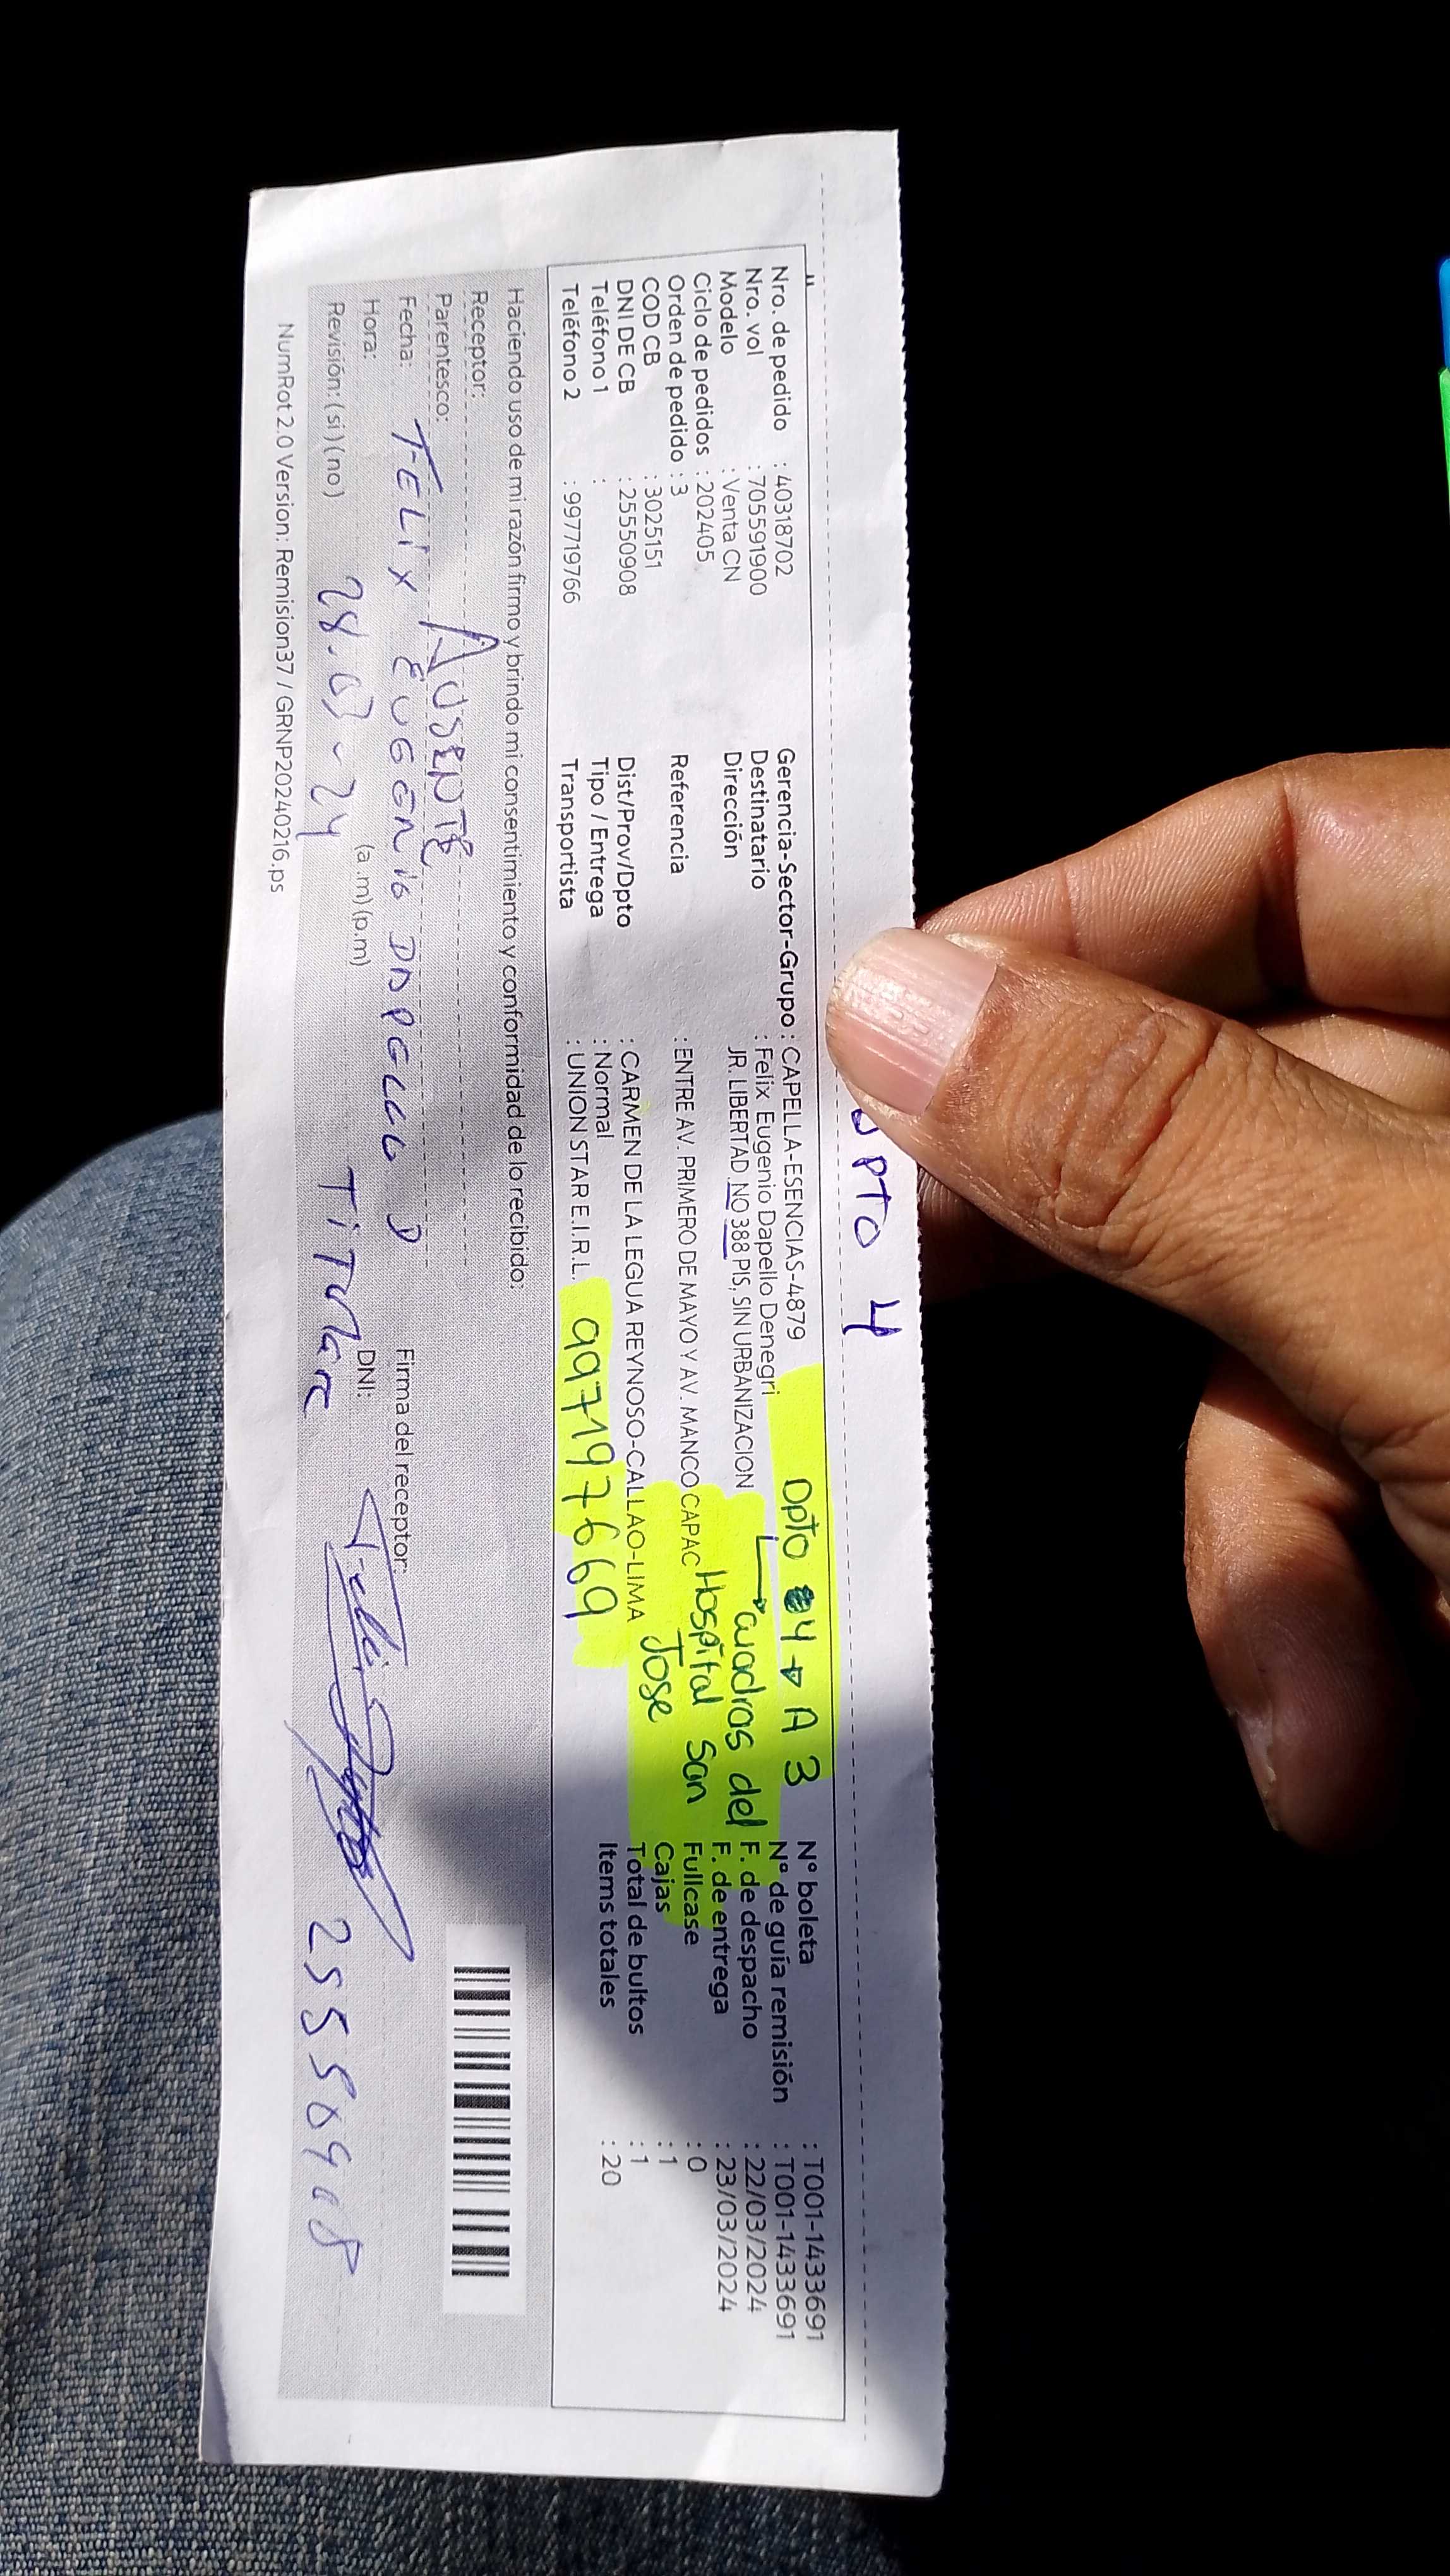 DPTO 4
Nro. de pedido : 40318702
Nro. vol : 705591900
Modelo : Venta CN
Ciclo de pedidos : 202405
Orden de pedido : 3
COD CB : 3025151
DNI DE CB : 25550908
Teléfono 1 :
Teléfono 2 : 997719766
Gerencia-Sector-Grupo : CAPELLA-ESENCIAS-4879
Destinatario : Felix Eugenio Dapello Denegri
Dirección JR. LIBERTAD NO 388 PIS, SIN URBANIZACION
Referencia : ENTRE AV. PRIMERO DE MAYO Y AV. MANCO CAPAC
Dist/Prov/Dpto : CARMEN DE LA LEGUA REYNOSO-CALLAO-LIMA
Tipo / Entrega : Normal
Transportista : UNION STAR E.I.R.L.
Dpto 4 → A 3
cuadras del
Hospital San
Jose
997197669
N° boleta : T001-1433691
N° de guía remisión : T001-1433691
F. de despacho : 22/03/2024
F. de entrega : 23/03/2024
Fullcase : 0
Cajas : 1
Total de bultos : 1
Items totales : 20
Haciendo uso de mi razón firmo y brindo mi consentimiento y conformidad de lo recibido:
Receptor:
Parentesco: AUSENTE
Fecha: FELIX EUGENIO DAPELLO D
Firma del receptor:
Hora: (a.m) (p.m)
DNI:
Revisión: (si) (no) 28.03-24 TiTular 25550908
NumRot2.0 Version: Remision37 / GRNP20240216.ps